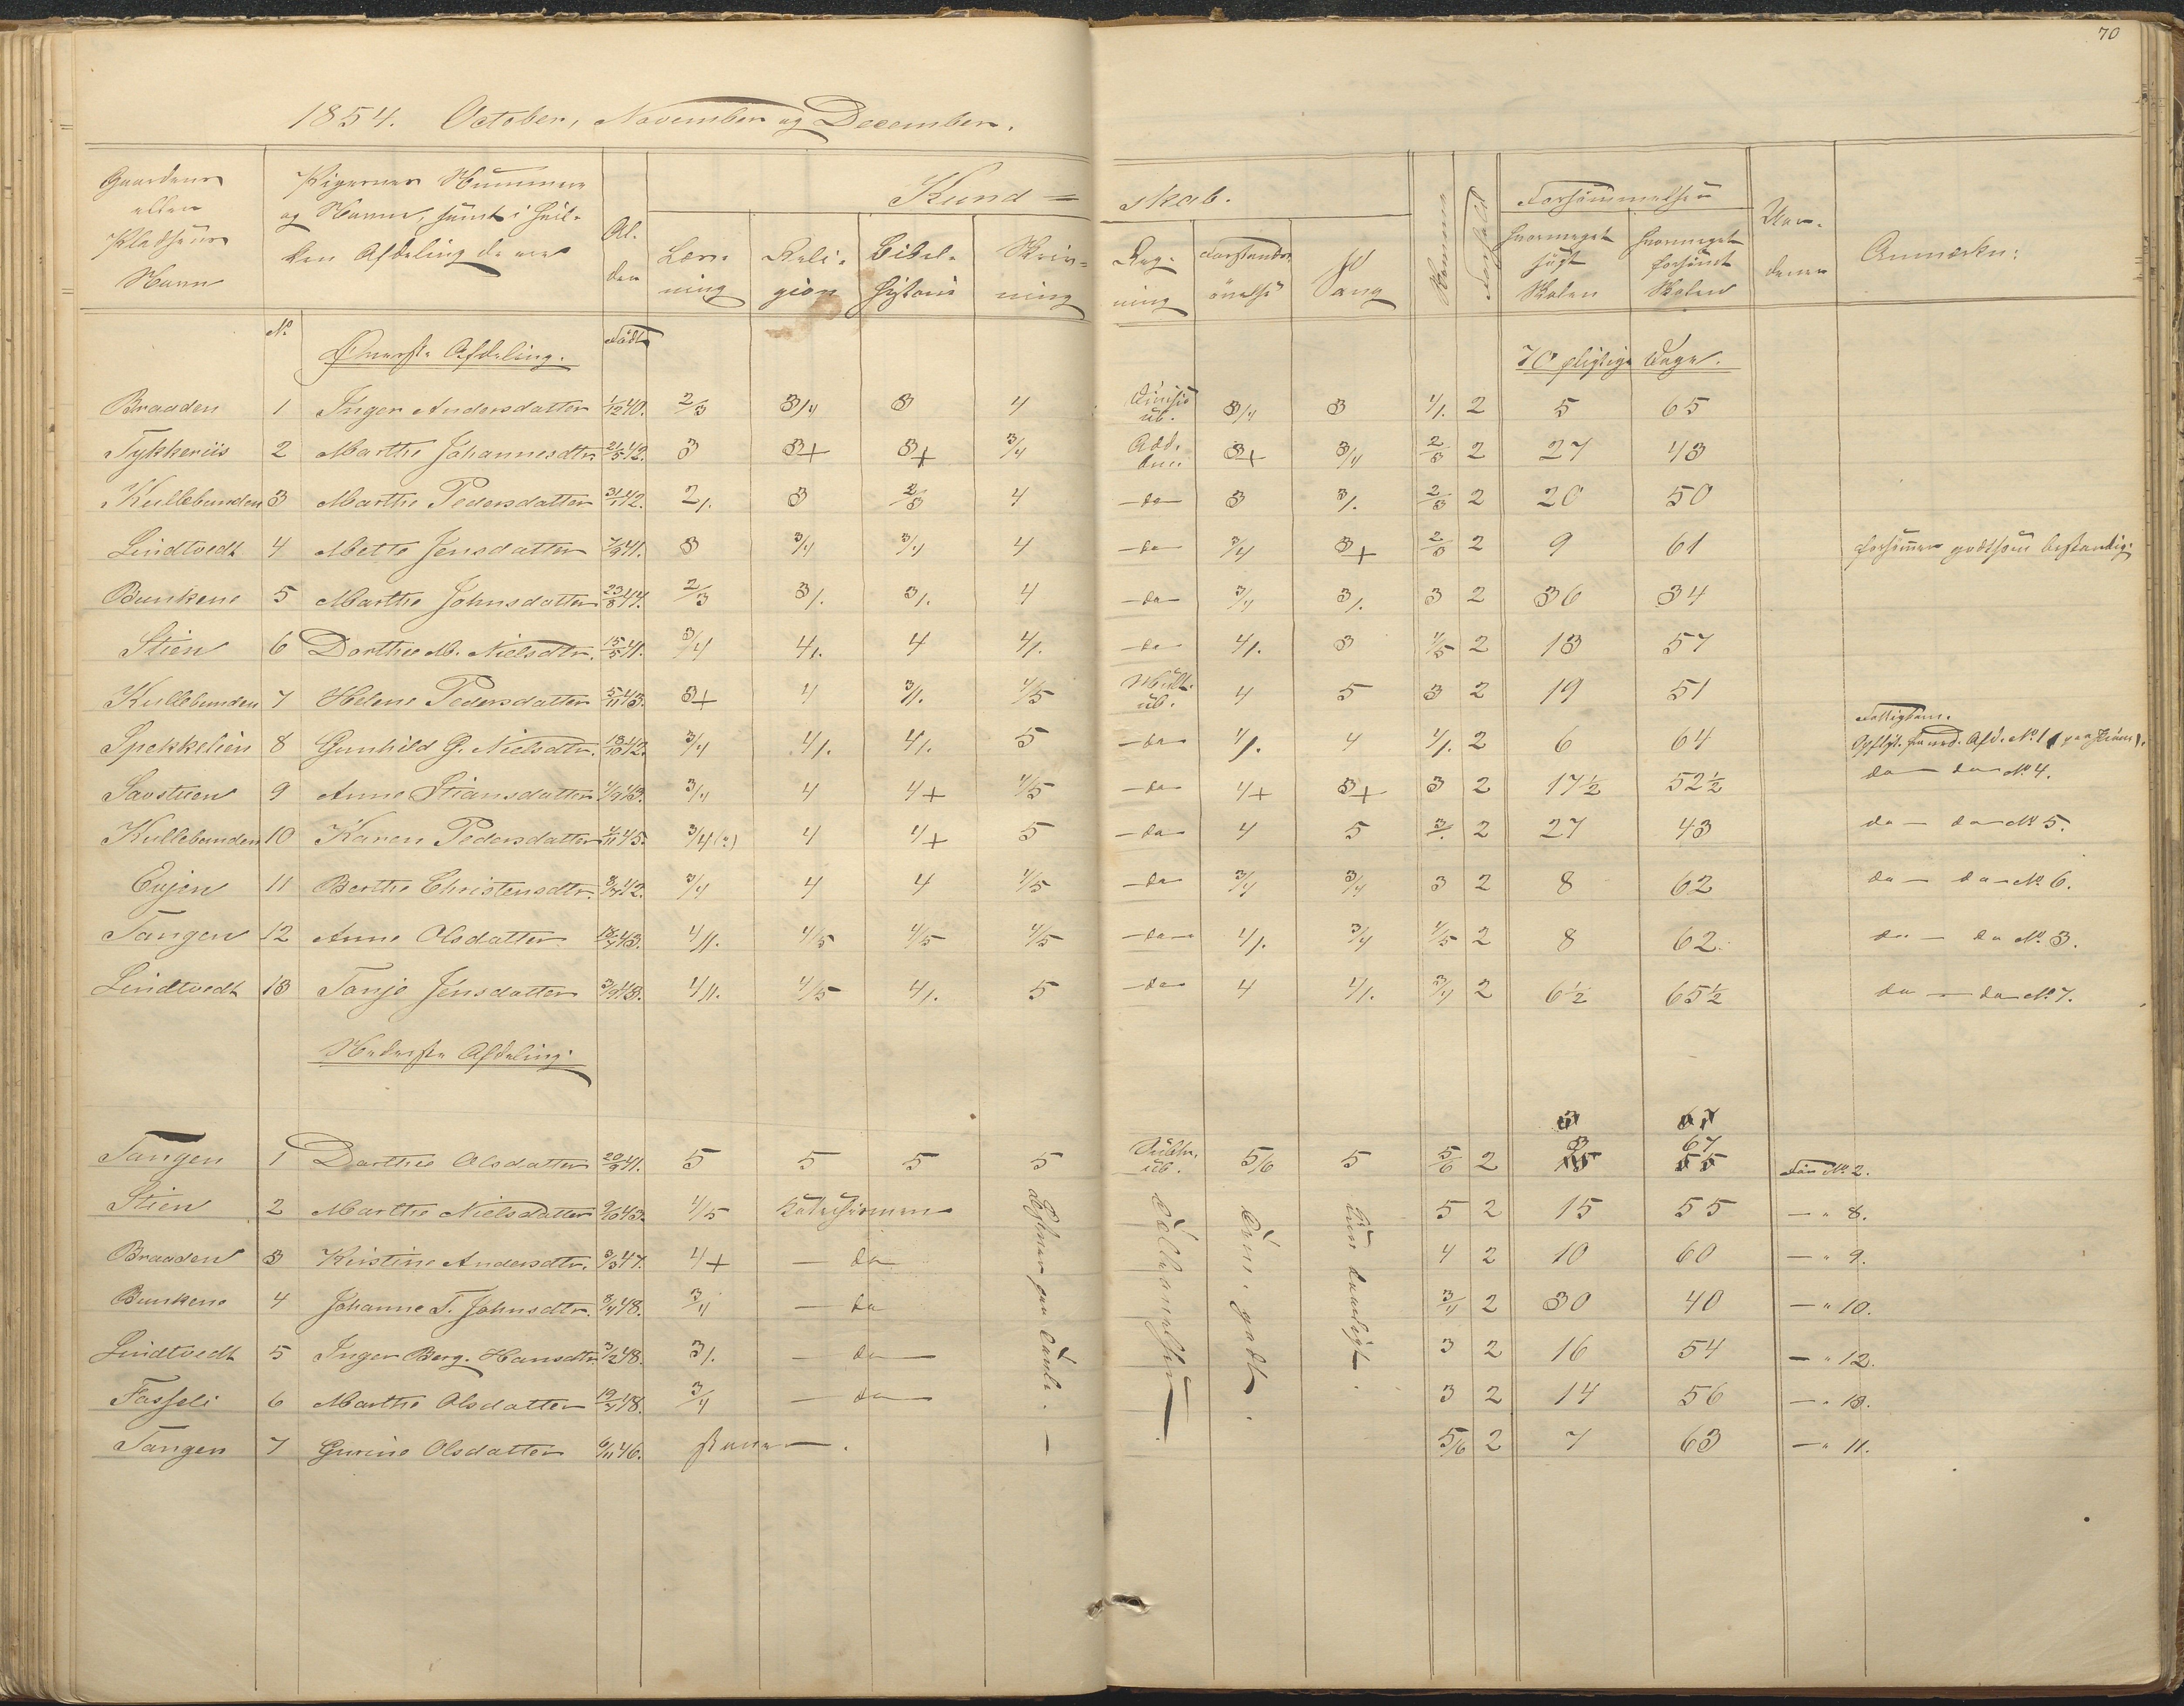 70
1854. October, November og December.
Gaardens eller Pladsens Navn
Pigernes Nummere og Navne, samt i hvilken Afdeling de ere
Alder
Kundskab.
Læsning
Religion
Bibelhistorie
Skrivning
Regning
Forstandsøvelse
Sang
Nemme
Forhold
Forsømmelsen
hvormeget søgt Skolen
hvormeget forsømt Skolen
Anmærkn:
No Øverste Afdeling. Født 70 pligtige Dage.
Braaden 1 Inger Andersdatter 1/12 40. 2/3 3/4 3 4 3/4 3 4/. 2 5 65
Tykkeriis 2 Marthe Johannesdtr. 21/5 42. 3 3+ 3+ 3/4 Addi- 3+ 3/4 2/3 2 27 43
Kullebunden 3 Marthe Pedersdatter 31/1 42. 2/. 3 2/3 4 — do — 3 3/. 2/3 2 20 50
Lindtvedt 4 Mette Jensdatter 7/9 41. 3 3/4 3/4 4 — do 3/4 3+ 2/3 2 9 61 forsømmer godtsom bestandig.
Bunkene 5 Marthe Johnsdatter 23/8 44. 2/3 3/. 3/. 4 — do — 3/4 3/. 3 2 36 34
Stien 6 Dorthe M. Nielsdtr. 15/5 41. 3/4 4/. 4 4/. — do — 4/. 3 4/5 2 13 57
Kullebunden 7 Helene Pedersdatter 5/11 43. 3+ 4 3/. 4/5 Mult. ub. 4 5 3 2 19 51
Spekkelien 8 Gunhild G. Nielsdtr. 13/10 42. 3/4 4/. 4/. 5 — do — 4/. 4 4/. 2 6 64 Fattigbarn. Opflyt. fra ned. Afd. No 1
Savstuen 9 Anne Stiansdatter 4/9 43. 3/4 4 4+ 4/5 — do — 4+ 3+ 3 2 17½ 52½ do — do No 4.
Kullebunden 10 Karen Pedersdatter 4/11 45. 3/4 4 4+ 5 — do — 4 5 3/. 2 27 43 do — do No 5.
Eujen 11 Berthe Christensdtr. 8/7 42. 3/4 4 4 4/5 — do — 3/4 3/4 3 2 8 62 do — do — No 6.
Tangen 12 Anne Olsdatter 43. 4/. 4/5 4/5 4/5 — do — 4/. 3/4 4/5 2 8 62 do — do No 3.
Lindtvedt 13 Tanje Jensdatter 3/9 43. 4/. 4/5 4/. 5 — do — 4 4/. 3/4 2 6½ 65½ do — do No 7.
Nederste Afdeling.
Tangen 1 Dorthe Olsdatter 20/9 41. 5 5 5 5 Subtr. ub. 5/6 5 5/6 2 3 67 Før No 2.
Stien 2 Marthe Nielsdatter 9/10 43. 4/5 Katechismen 5 2 15 55 — " 8.
Braaden 3 Kirstine Andersdtr. 3/3 47. 4+ — do — 4 2 10 60 — " 9.
Bunkene 4 Johanne T. Johnsdtr. 8/4 48. 3/4 — do 3/4 2 30 40 — " 10.
Lindtvedt 5 Inger Berg. Hansdtr. 3/2 48. 3/. — do — 3 2 16 54 — " 12.
Fasseli 6 Marthe Olsdatter 19/4 48. 3/4 — do — 3 2 14 56 — " 13.
Tangen 7 Gurine Olsdatter 6/11 46. staver — . 5/6 2 7 63 — " 11.
Bogstaver paa Tavle. —
Tem. godt.